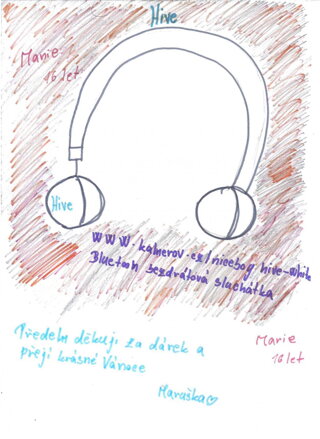 Hive
Marie
16 let
Hive
WWW.kamerov.cz/niceboy hive-white
Bluetooh bezdrátová sluchátka
Předem děkuji za dárek a
přeji krásné Vánoce
Maruška
Marie
16 let